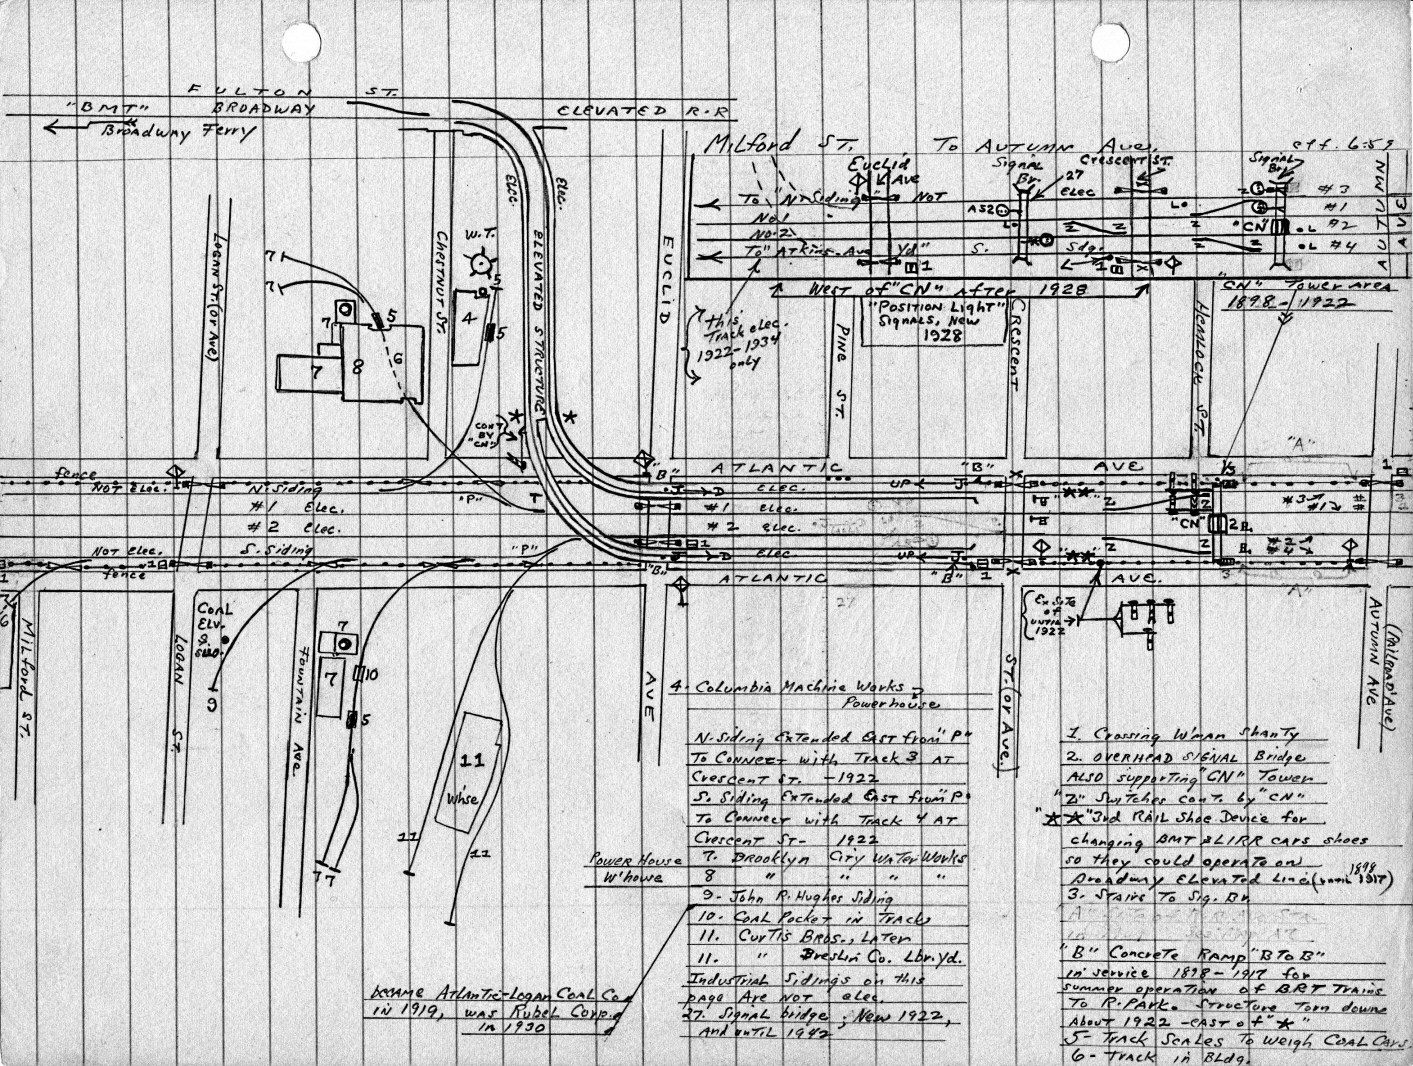 FULTON ST.
"BMT" BROADWAY ELEVATED R-R
Broadway Ferry
MILford ST. To AUTUMN Ave.
eff. 6:59
Euclid Ave
Signal Br.
27
Crescent ST.
Signal Br.
To "N-Siding" NOT Elec
No.1
No.2
To "Atkins-Ave Yd" S. Sdg.
A52
L
1
1
Z
Z
Z
Z
"CN"
L
#3
#1
#2
#4
AUTUMN
AVE
West of "CN" After 1928
"POSITION LIGHT"
SIGNALS, NEW
1928
"CN" Tower Area
1898-1922
This
Track elec.
1922-1934
only
LOGAN ST. (or Ave)
CHESTNUT ST.
W.T.
Elec.
Elec.
ELEVATED STRUCTURE
EUCLID
PINE ST.
Crescent
Hemlock ST.
7
7
5
7
8
7
6
4
5
5
CONT
BY
"CN"
fence
NOT Elec.
N. Siding
#1 Elec.
#2 Elec.
NOT Elec.
S. Siding
fence
"P"
"P"
"B"
ATLANTIC
"B"
AVE
"A"
J D elec.
#1 elec.
#2 elec.
D Elec.
UP J
UP J
"B"
ATLANTIC
"B"
AVE.
"A"
"CN"
2
3
27
MILford ST.
LOGAN ST.
COAL
ELV.
9
FOUNTAIN Ave
7
7
10
5
7 7
11
Whse
11
11
AVE
ST. (or Ave.)
AUTUMN AVE
(RAILROAD Ave)
EX SITE
OF
UNTIL
1922
4. Columbia Machine Works
Powerhouse
N. Siding Extended East from "P"
To Connect with Track 3 AT
Crescent ST. - 1922
S. Siding Extended East from "P"
To Connect with Track 4 AT
Crescent ST - 1922
Power House 7. Brooklyn City Water Works
W'house 8 " " " "
9- John R. Hughes Siding
10. COAL Pocket in Track
11. CURTIS BROS., LATER
11. " Breslin Co. Lbr. Yd.
Industrial Sidings on this
page Are NOT elec.
27. Signal bridge, New 1922,
And until 1942
became Atlantic-Logan Coal Co.
IN 1919, was Rubel Corp.
in 1930
1. Crossing W'man Shanty
2. OVERHEAD SIGNAL Bridge
ALSO supporting "CN" Tower
"Z" Switches cont. by "CN"
"★★" 3rd RAIL Shoe Device for
changing BMT & LIRR cars shoes
so they could operate on
Broadway Elevated Line (until 1898 1917)
3. STAIRS To Sig. Br.
"B" Concrete Ramp "B To B"
in service 1898-1917 for
summer operation of BRT Trains
To R. Park. Structure Torn down
About 1922 - EAST of "★"
5- Track Scales To Weigh COAL Cars
6- Track in Bldg.